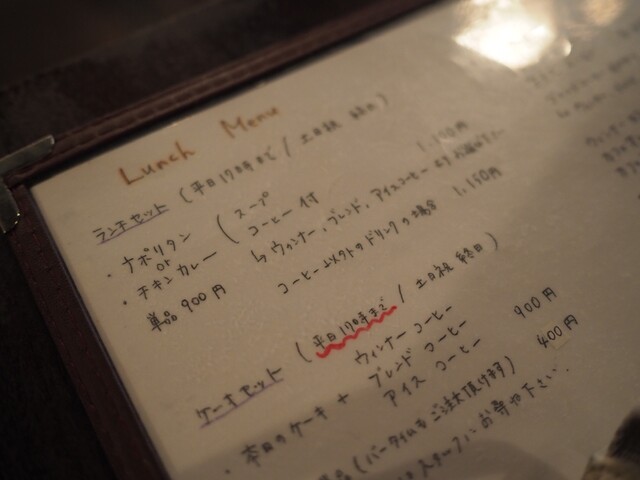 Lunch Menu
ランチセット (平日17時まで / 土日祝 終日)
・ナポリタン
or
・チキンカレー
(スープ
コーヒー付 1,100円
↳ ウィンナー、ブレンド、アイスコーヒーより
コーヒー以外のドリンクの場合 1,150円
単品 900円
ケーキセット (平日17時まで / 土日祝 終日)
・本日のケーキ +
ウィンナーコーヒー
ブレンドコーヒー 900円
アイスコーヒー
400円
(バータイムもご注文頂けます)
スタッフにお尋ね下さい.